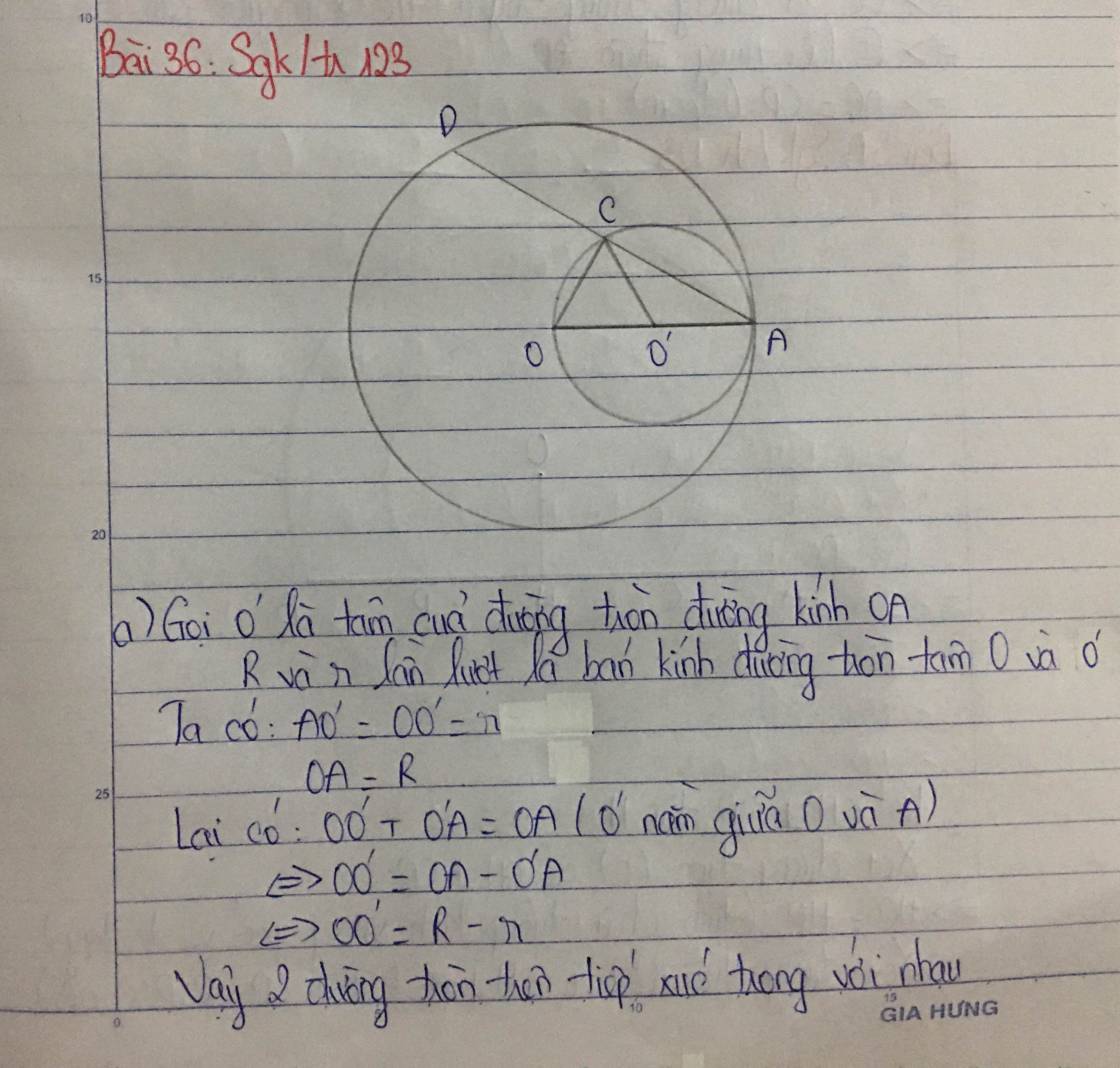 10
Bài 36: Sgk/tr 123
D
C
15
O
O'
A
20
a) Gọi O' là tâm của đường tròn đường kính OA
R và r lần lượt là bán kính đường tròn tâm O và O'
Ta có: AO' = OO' = r
OA = R
25
Lại có: OO' + O'A = OA (O' nằm giữa O và A)
<=> OO' = OA - O'A
<=> OO' = R - r
Vậy 2 đường tròn trên tiếp xúc trong với nhau
0
10
15
GIA HƯNG